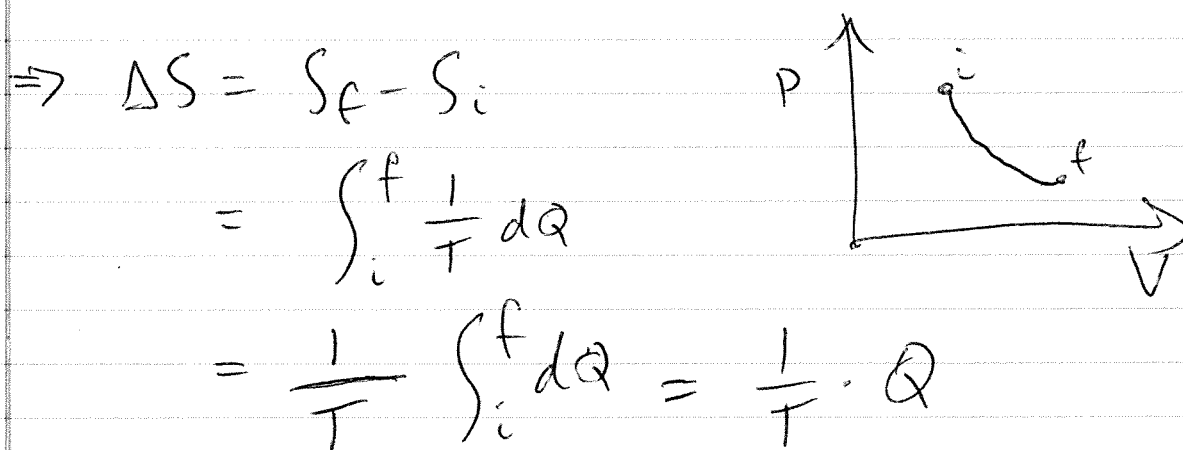 ⇒ ΔS = S_f - S_i
= ∫_i^f 1/T dQ
= 1/T ∫_i^f dQ = 1/T · Q
P
i
f
V